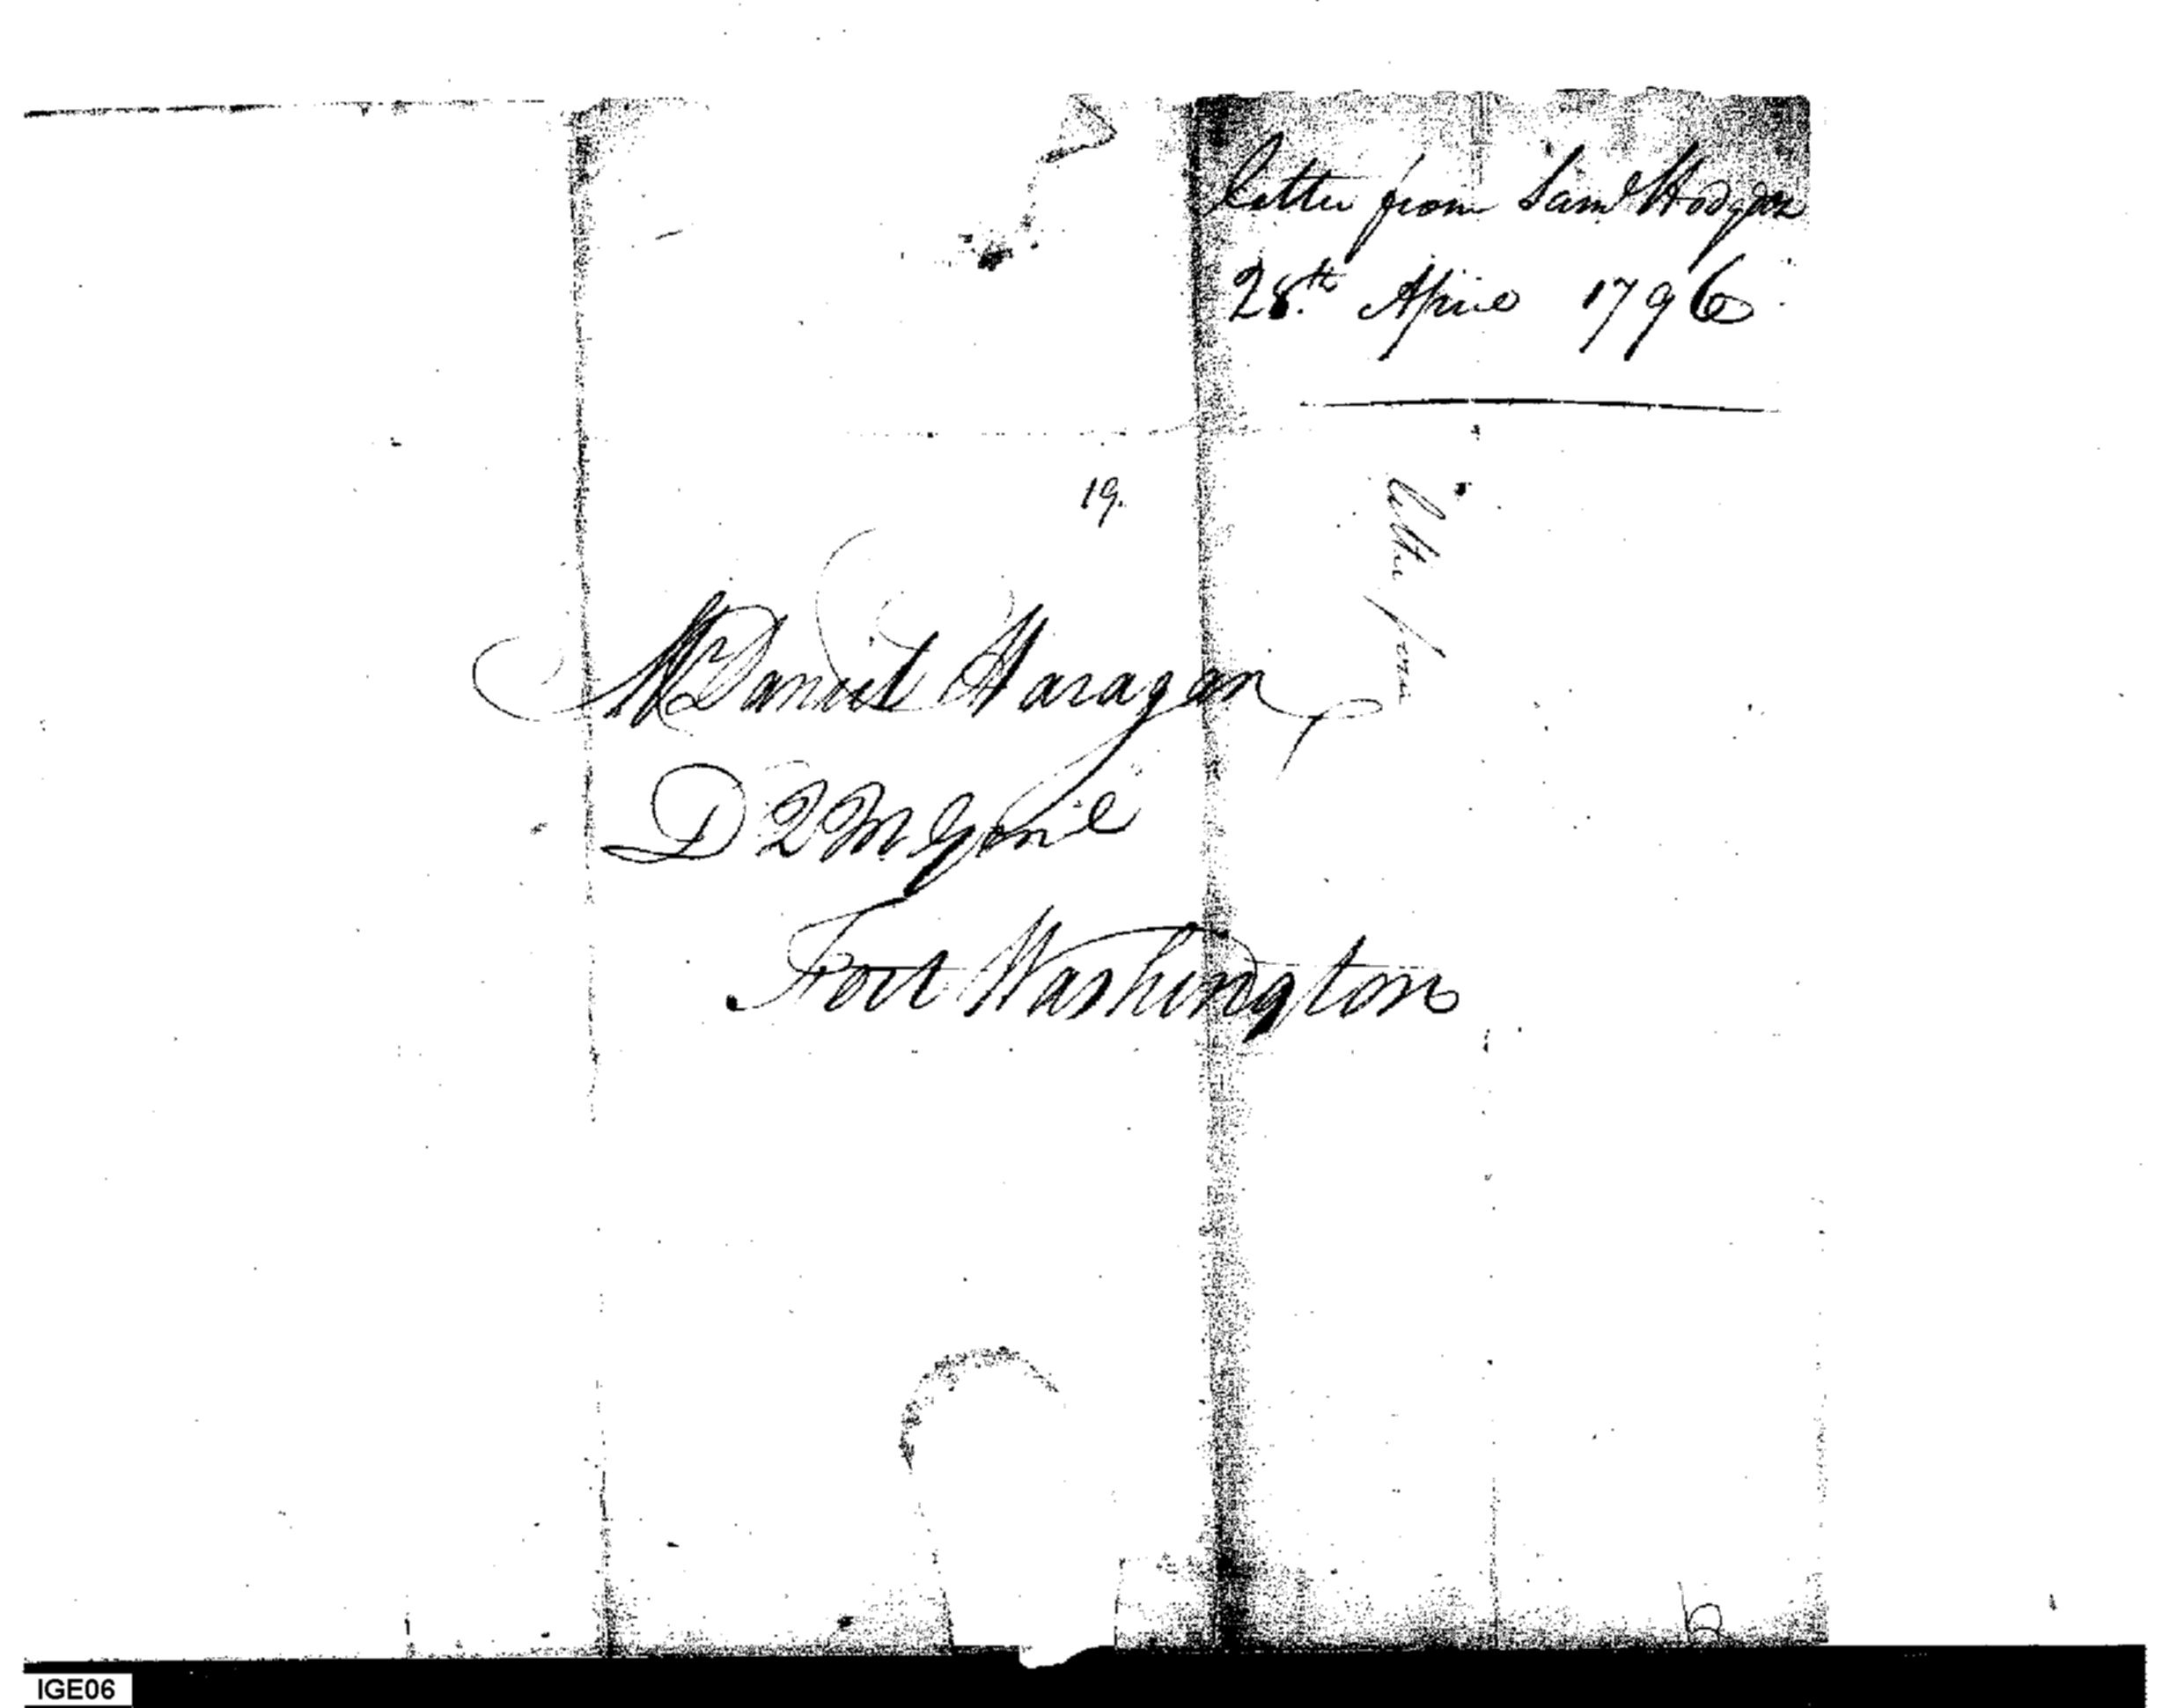 letter from Sam.l Hodgdon
28.th April 1796
19.
letter from
Mr Daniel Haragan
D Q M Gen'l
Fort Washington
IGE06